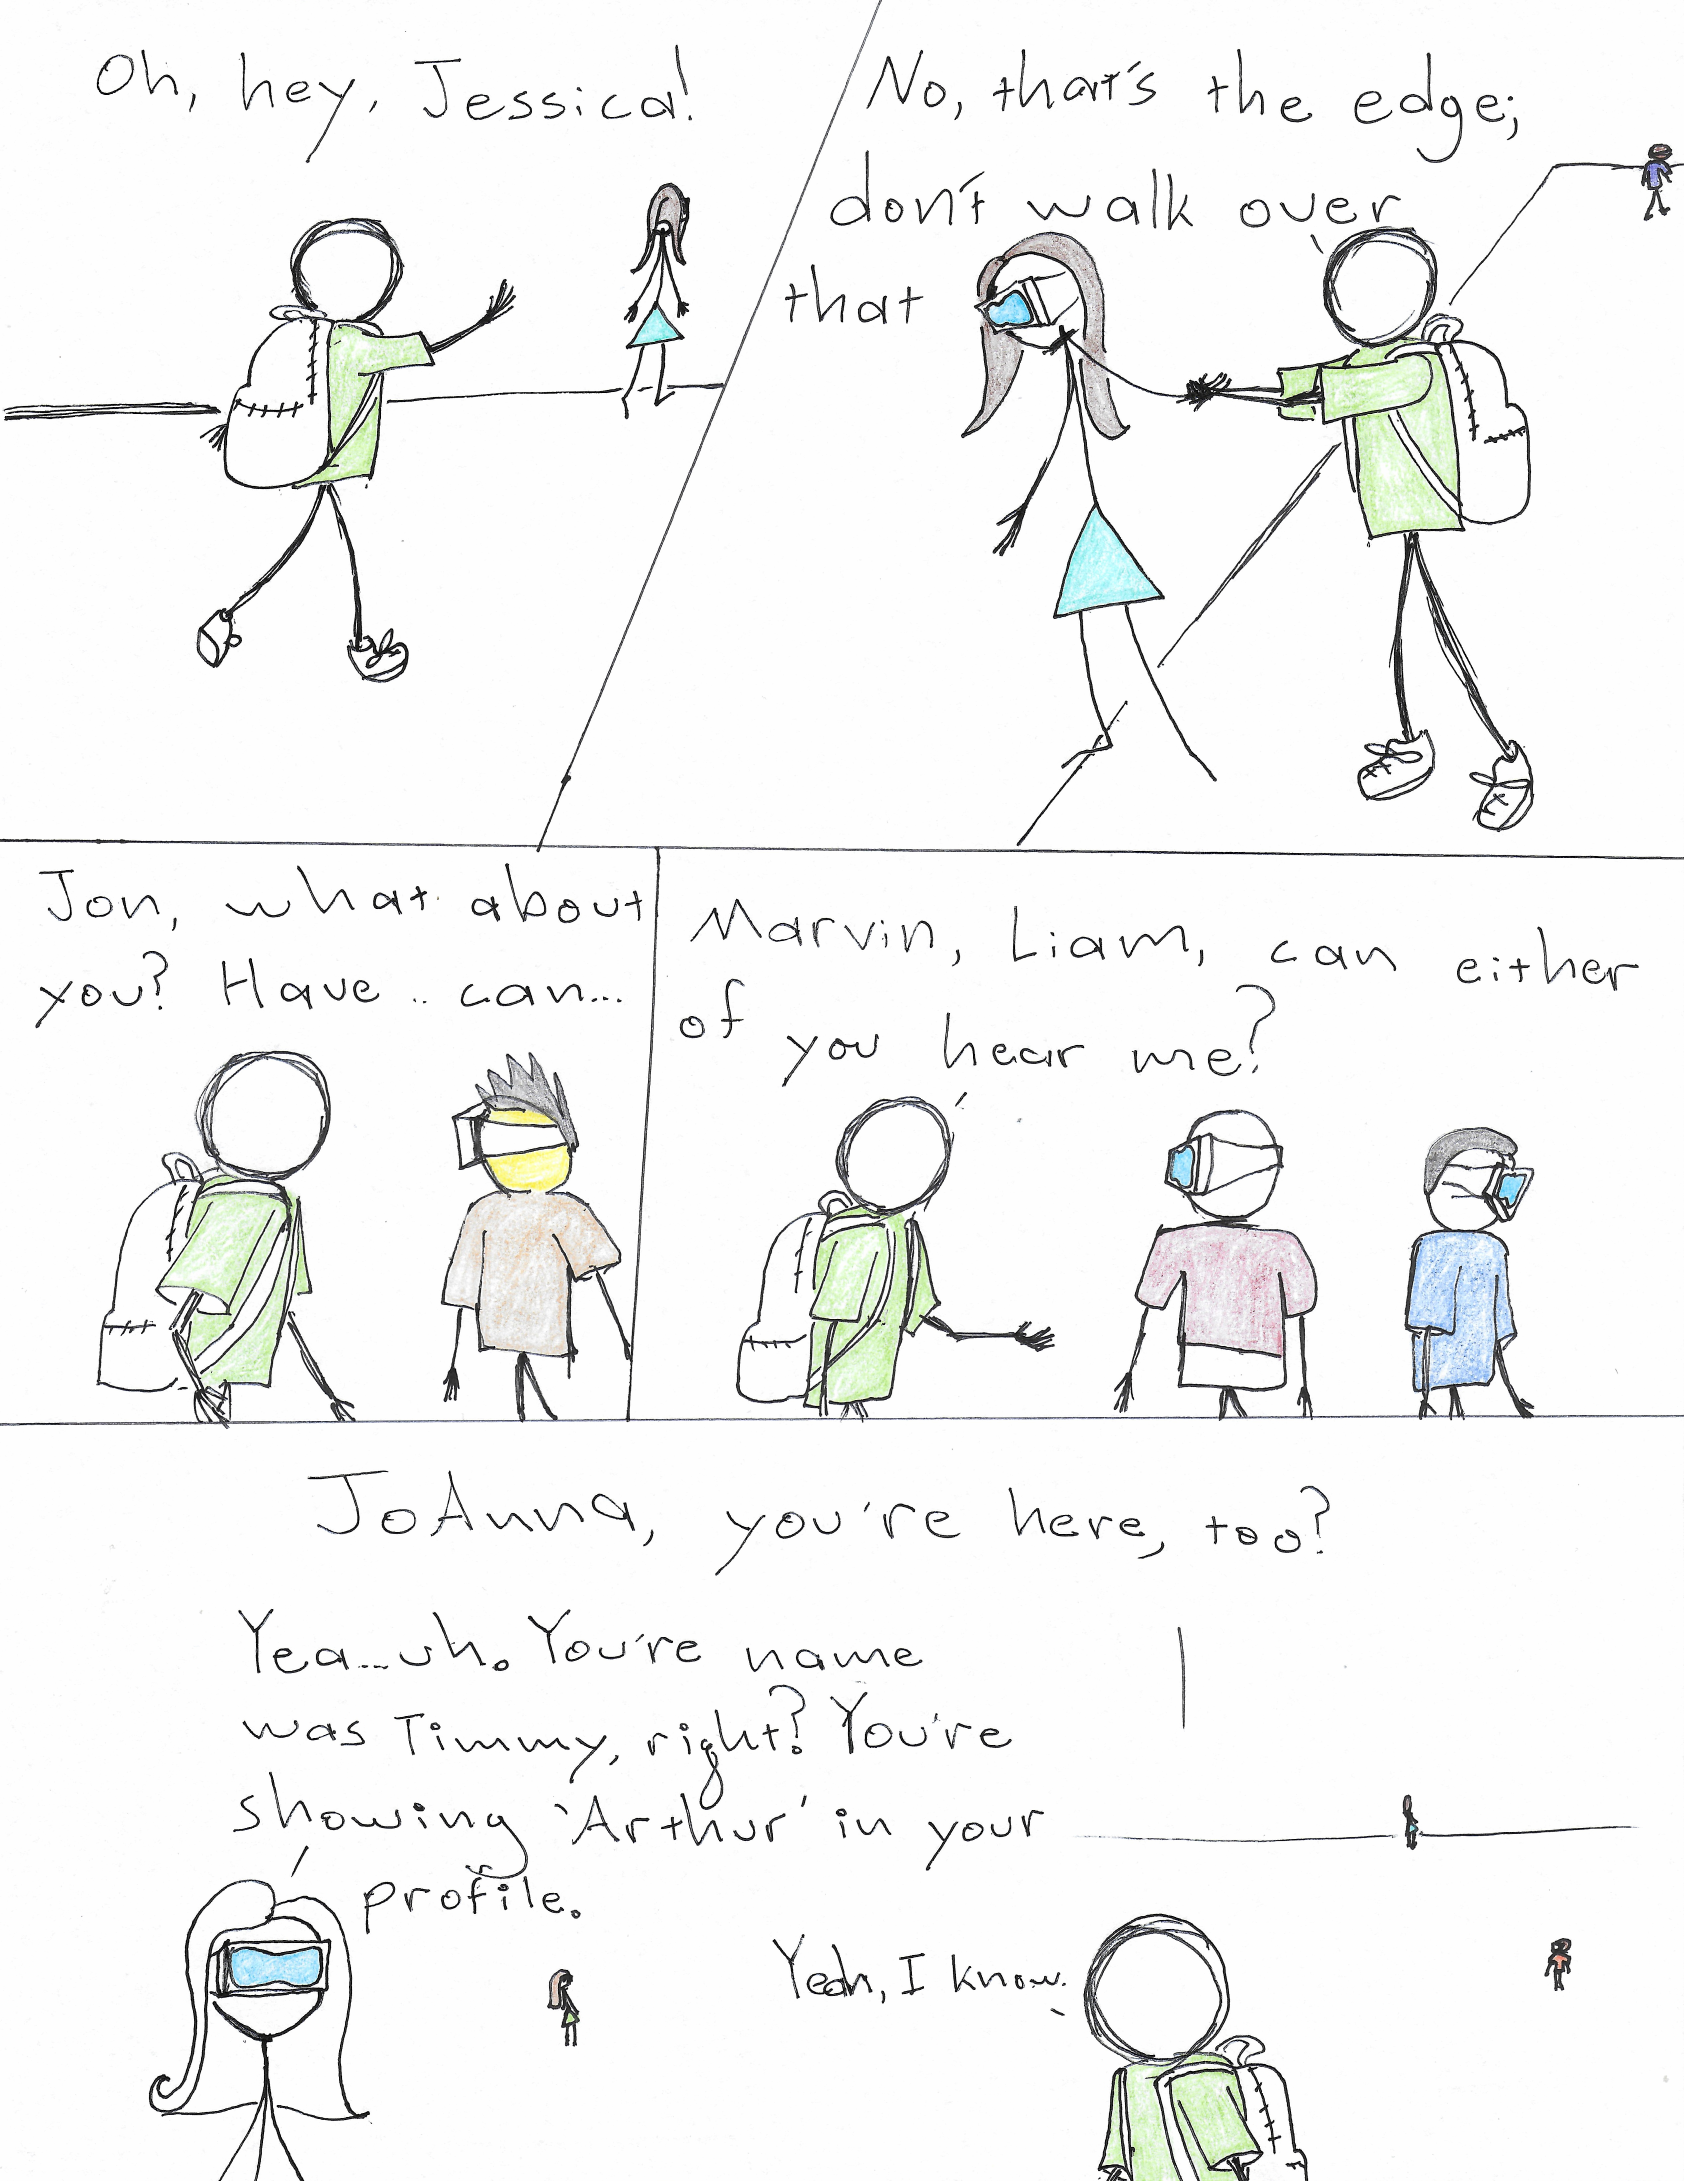 Oh, hey, Jessica!
No, that's the edge;
don't walk over
that
Jon, what about
you? Have .. can...
Marvin, Liam, can either
of you hear me?
JoAnna, you're here, too?
Yea...uh. You're name
was Timmy, right? You're
showing 'Arthur' in your
profile.
Yeah, I know.